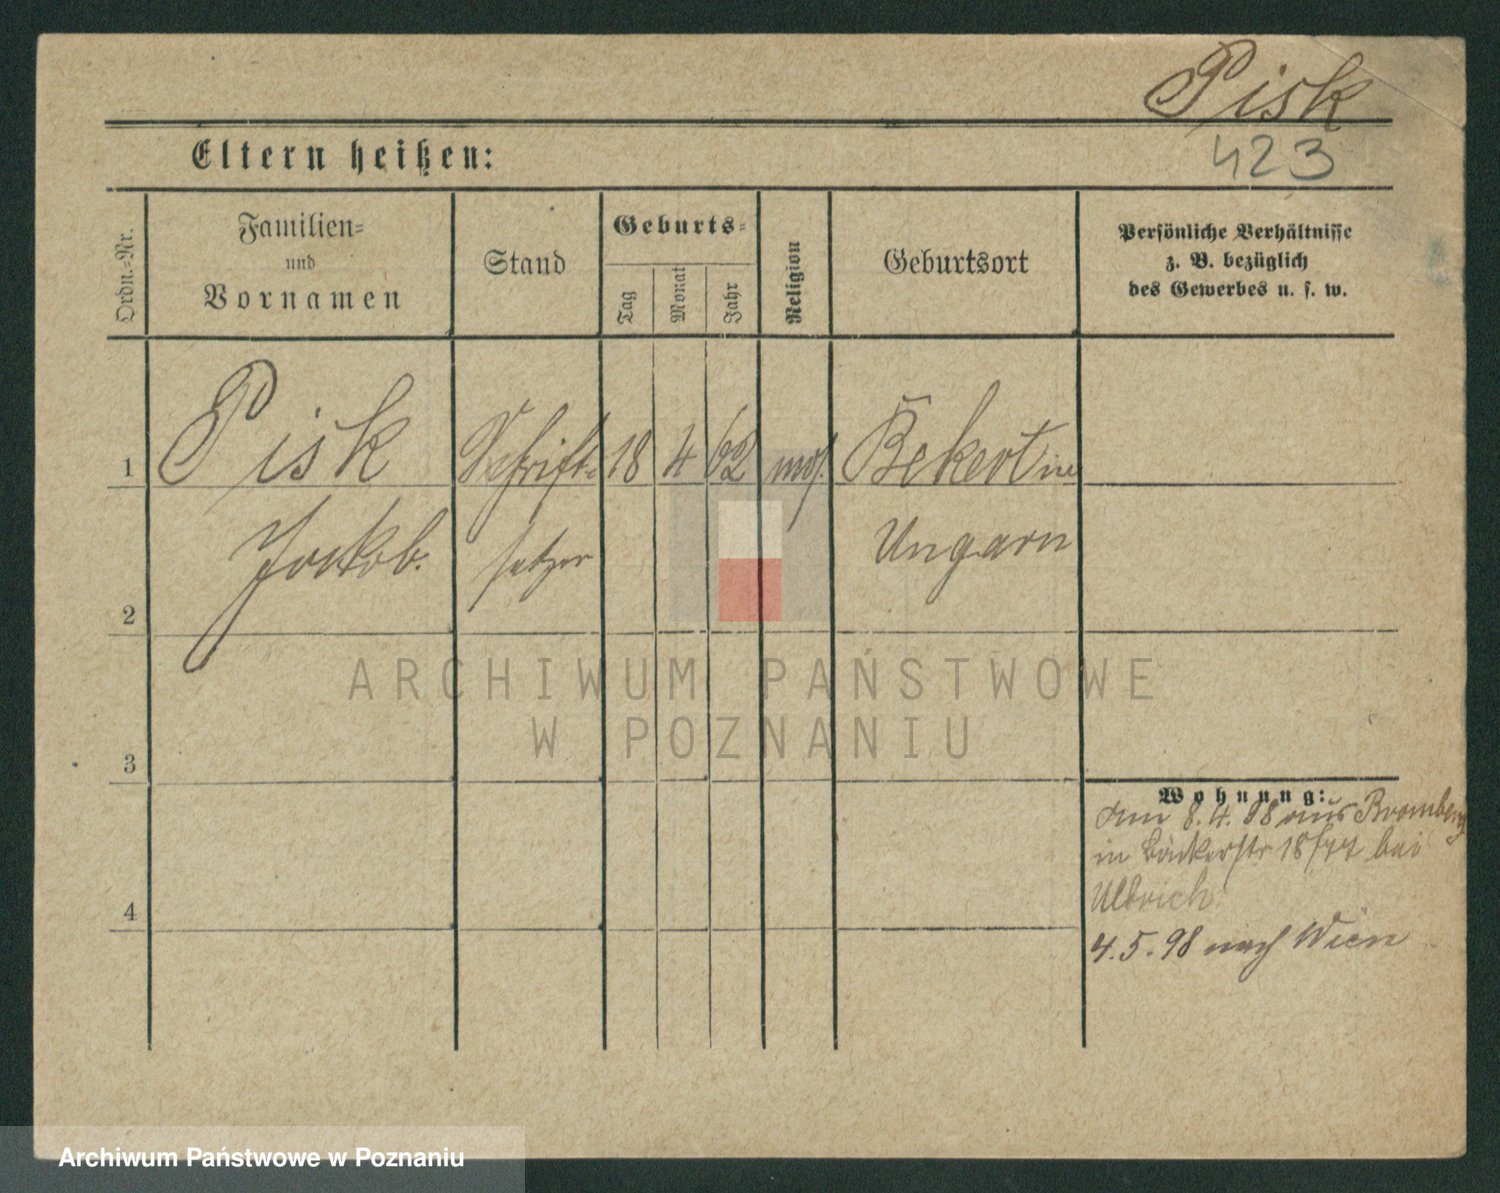 Pisk
423
Eltern heißen:
Ordn.-Nr.
Familien- und Vornamen
Stand
Geburts-
Tag
Monat
Jahr
Religion
Geburtsort
Persönliche Verhältnisse
z. B. bezüglich
des Gewerbes u. s. w.
1
Pisk
Schrift-
18
4
62
mos.
Ungarn
Jakob.
setzer
2
3
4
Wohnung:
am 8.4. 98 aus Bromberg
in Bäckerstr bei
Ulbrich
4.5.98 nach Wien
ARCHIWUM PAŃSTWOWE
W POZNANIU
Archiwum Państwowe w Poznaniu